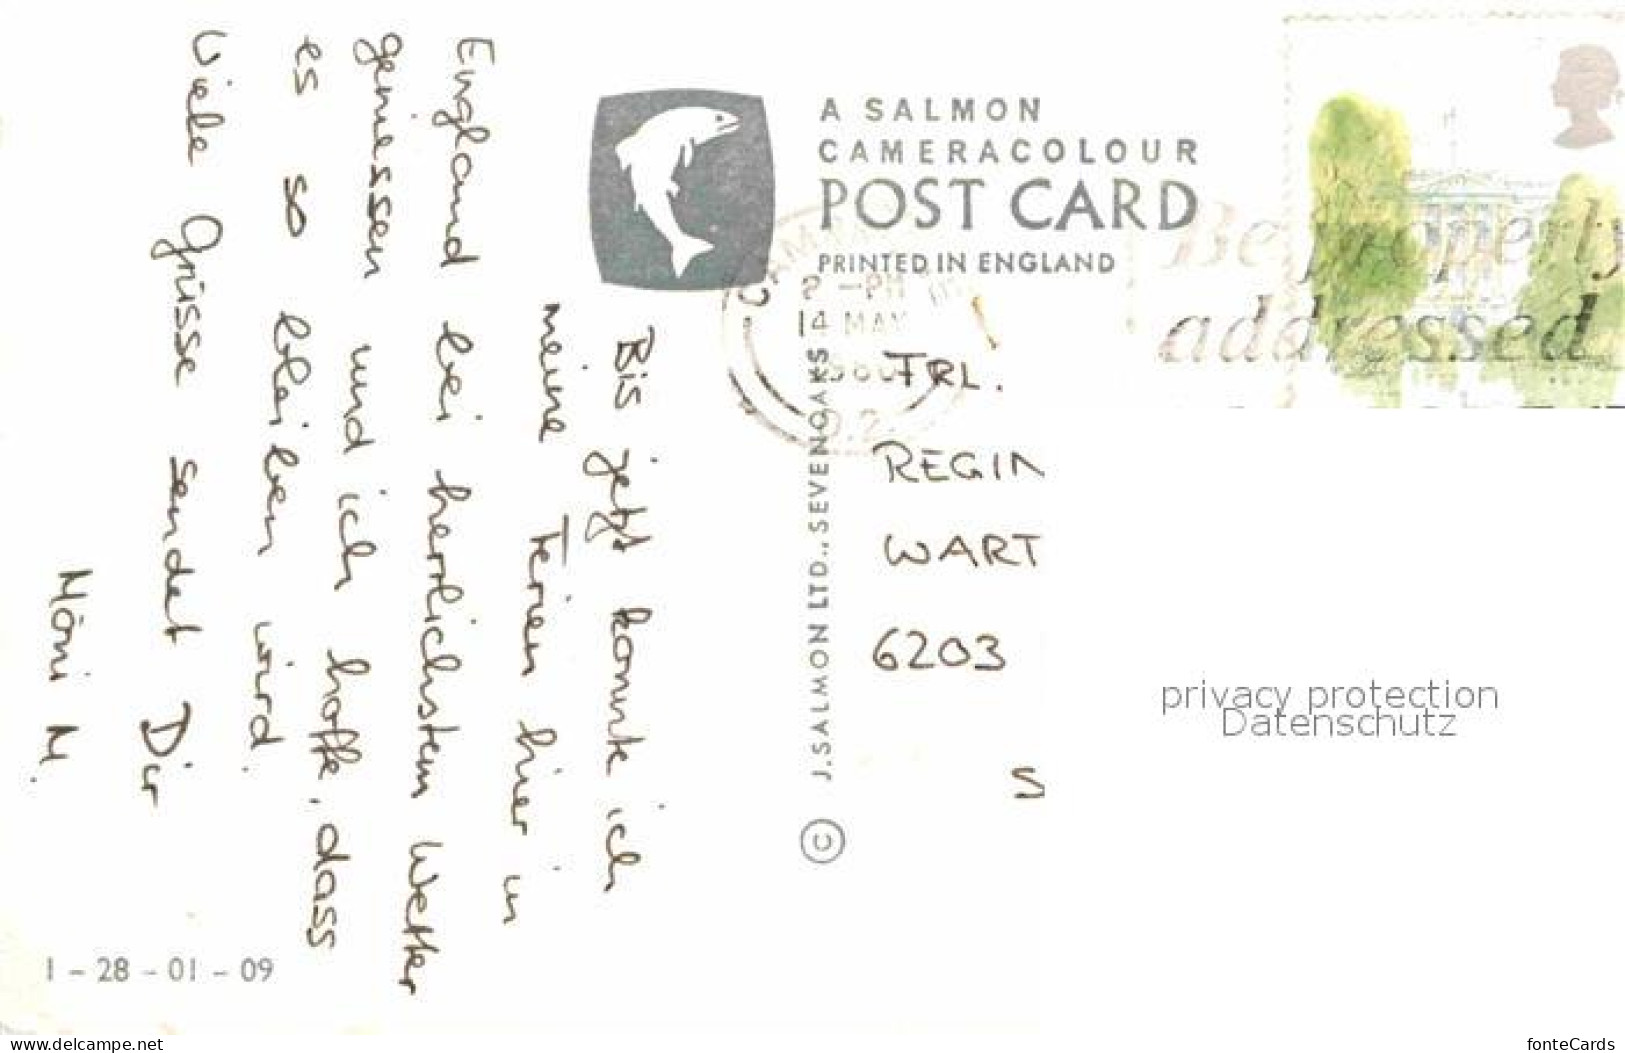 A SALMON
CAMERACOLOUR
POST CARD
PRINTED IN ENGLAND
2 - PM
14 MAY
Be properly
addressed
Bis jetzt konnte ich
meine Ferien hier in
England bei herrlichstem Wetter
geniessen und ich hoffe, dass
es so bleiben wird.
Viele Grüsse sendet Dir
Möni M.
FRL.
REGIN
WART
6203
S
J. SALMON LTD., SEVENOAKS
©
1 - 28 - 01 - 09
privacy protection
Datenschutz
www.delcampe.net
fonteCards